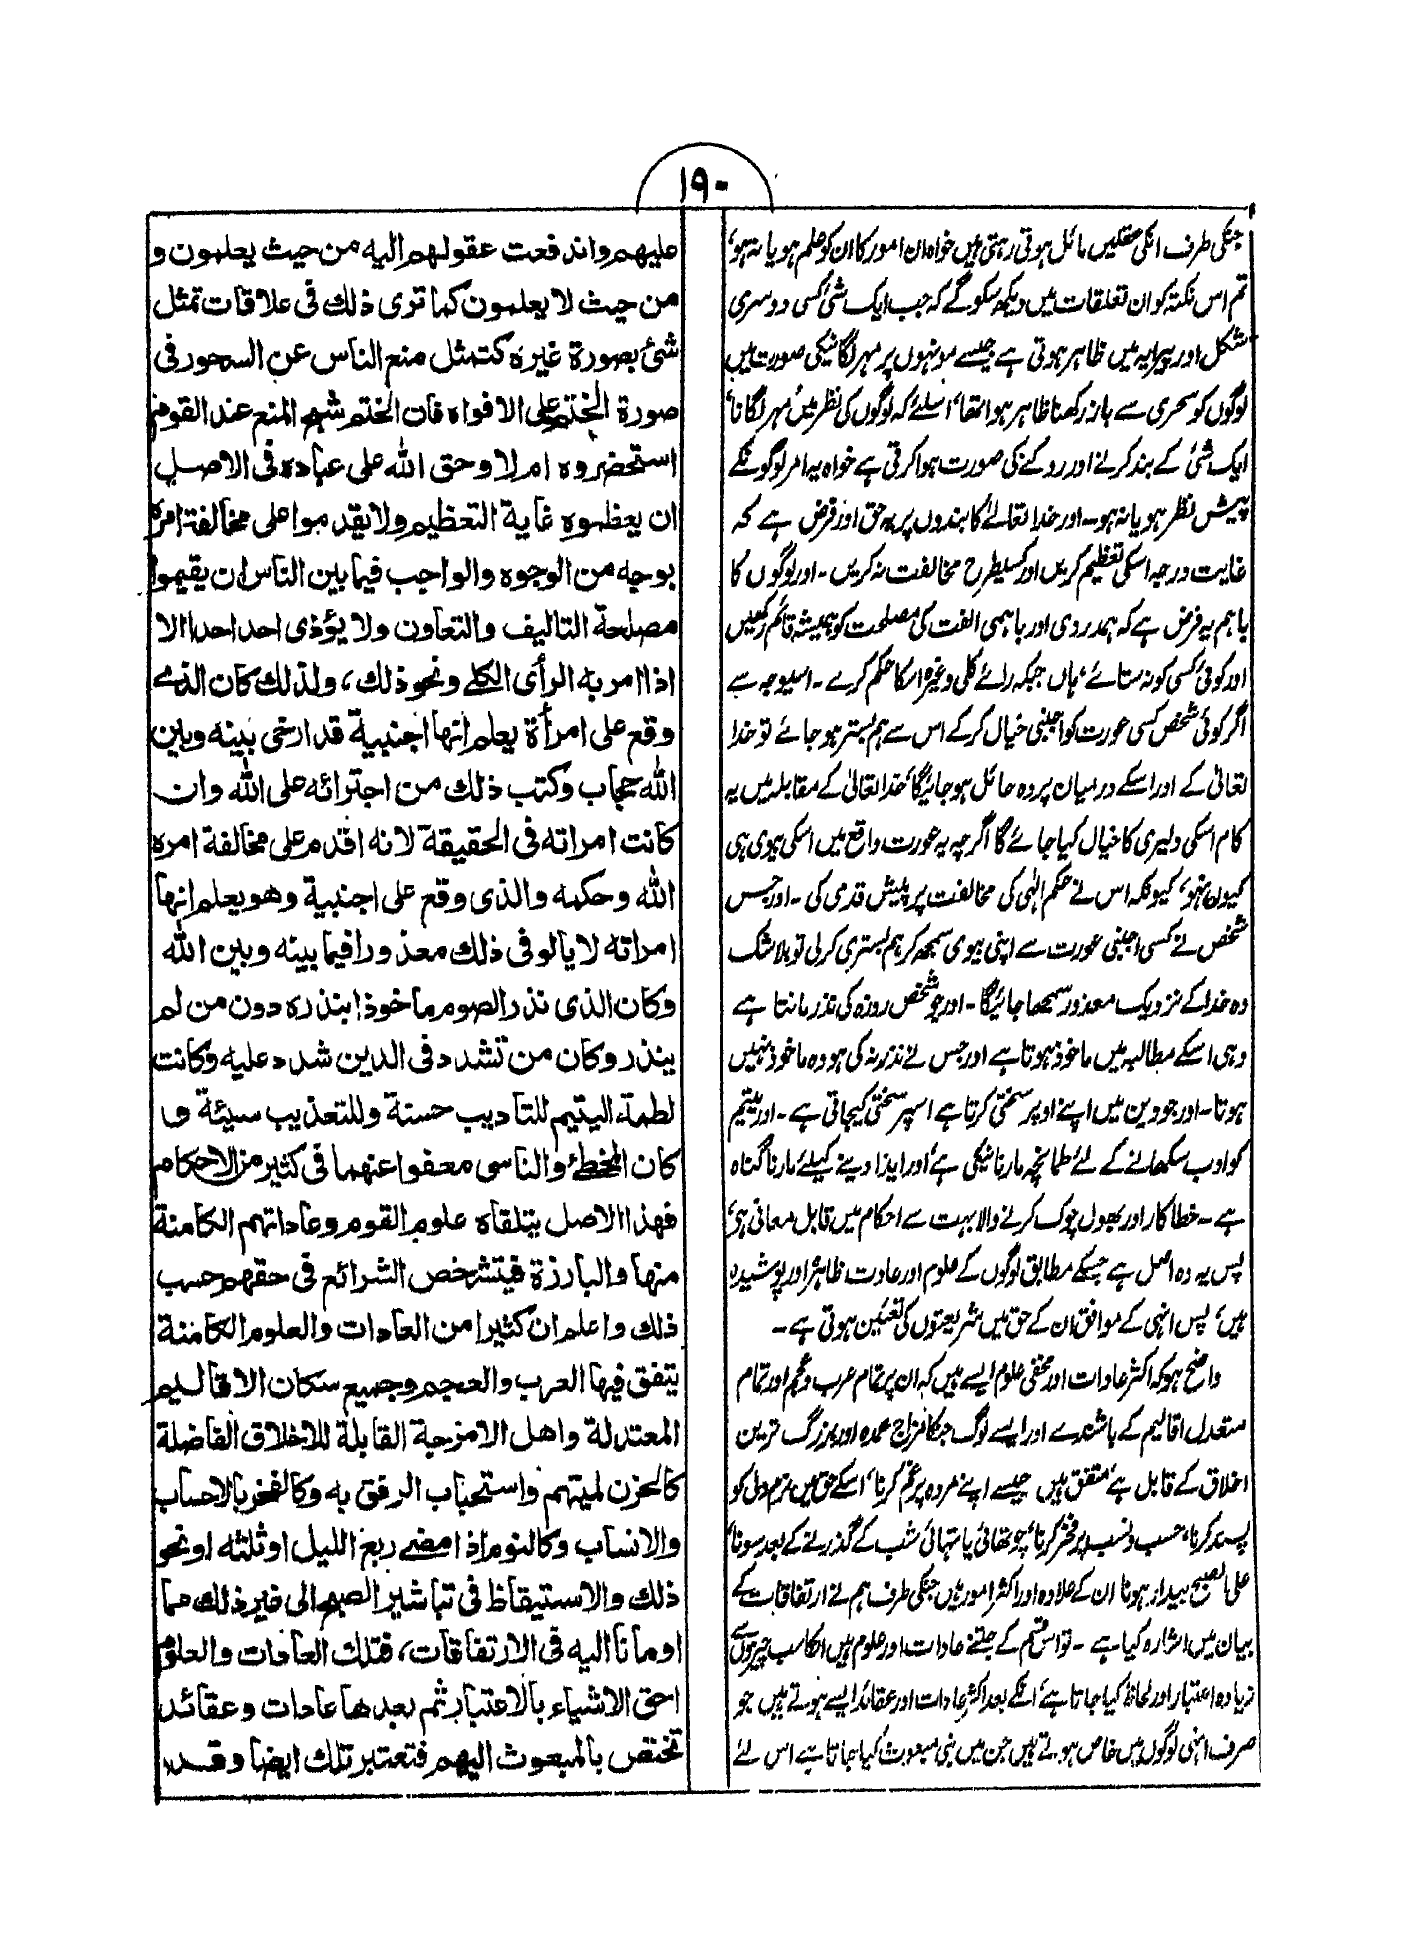 ۱۹۰
جنکی طرف انکی عقلیں مائل ہوتی رہتی ہیں خواہ ان امور کا ان کو علم ہو یا نہ ہو،
تم اس نکتہ کو ان تعلقات میں دیکھ سکو گے کہ جب ایک شئ کسی دوسری
شکل اور پیرایہ میں ظاہر ہوتی ہے جیسے مونہوں پر مہر لگانیکی صورت میں
لوگوں کو سحری سے باز رکھنا ظاہر ہوا تھا، اسلئے کہ لوگوں کی نظر میں مہر لگانا،
ایک شئ کے بند کرنے اور روکنے کی صورت ہوا کرتی ہے خواہ یہ امر لوگونکے
پیش نظر ہو یا نہ ہو۔ اور خدا تعالےٰ کا بندوں پر یہ حق اور فرض ہے کہ
غایت درجہ اسکی تعظیم کریں اور کسیطرح مخالفت نہ کریں۔ اور لوگوں کا
باہم یہ فرض ہے کہ ہمدردی اور باہمی الفت کی مصلحت کو ہمیشہ قائم رکھیں
اور کوئی کسی کو نہ ستائے، ہاں جبکہ رائے کلی وغیرہ اسکا حکم کرے۔ اسیوجہ سے
اگر کوئی شخص کسی عورت کو اجنبی خیال کرکے اس سے ہم بستر ہو جائے تو خدا
تعالیٰ کے اور اسکے درمیان پردہ حائل ہو جائیگا، خدا تعالیٰ کے مقابلہ میں یہ
کام اسکی دلیری کا خیال کیا جائے گا اگرچہ یہ عورت واقع میں اسکی بیوی ہی
کیوں نہو، کیونکہ اس نے حکم الٰہی کی مخالفت پر پیش قدمی کی۔ اور جس
شخص نے کسی اجنبی عورت سے اپنی بیوی سمجھ کر ہم بستری کرلی تو بلا شک
وہ خدا کے نزدیک معذور سمجھا جائیگا۔ اور جو شخص روزہ کی نذر مانتا ہے
وہی اسکے مطالبہ میں ماخوذ ہوتا ہے اور جس نے نذر نہ کی ہو وہ ماخوذ نہیں
ہوتا۔ اور جو دین میں اپنے اوپر سختی کرتا ہے اسپر سختی کیجاتی ہے۔ اور یتیم
کو ادب سکھانے کے لئے طمانچہ مارنا نیکی ہے اور ایذا دینے کیلئے مارنا گناہ
ہے۔ خطا کار اور بھول چوک کرنے والا بہت سے احکام میں قابل معافی ہے،
پس یہ وہ اصل ہے جسکے مطابق لوگوں کے علوم اور عادت ظاہر اور پوشیدہ
ہیں، پس انہی کے موافق ان کے حق میں شریعتوں کی تعیین ہوتی ہے۔
واضح ہو کہ اکثر عادات اور مخفی علوم ایسے ہیں کہ ان پر تمام عرب و عجم اور تمام
معتدل اقالیم کے باشندے اور ایسے لوگ جنکا مزاج عمدہ اور بزرگ ترین
اخلاق کے قابل ہے، متفق ہیں جیسے اپنے مردہ پر غم کرنا، اسکے حق میں نرم دلی کو
پسند کرنا، حسب و نسب پر فخر کرنا، چوتھائی یا تہائی شب کے گذرنے کے بعد سونا،
علی الصبح بیدار ہونا ان کے علاوہ اور اکثر امور ہیں جنکی طرف ہم نے ارتفاقات کے
بیان میں اشارہ کیا ہے۔ تو اس قسم کے جتنے عادات اور علوم ہیں انکا سب چیزوں سے
زیادہ اعتبار اور لحاظ کیا جاتا ہے، انکے بعد اکثر عادات اور عقائد ایسے ہوتے ہیں جو
صرف انہی لوگوں میں خاص ہوتے ہیں جن میں نبی مبعوث کیا جاتا ہے اس لئے
علیهم واندفعت عقولهم الیه من حیث یعلمون و
من حیث لا یعلمون کما تری ذلك فی علاقات تمثل
شئ بصورة غیره کتمثل منع الناس عن السحور فی
صورة الختم علی الافواه فان الختم شبح المنع عند القوم
استحضروه ام لا وحق الله علی عباده فی الاصل
ان یعظموه غایة التعظیم ولا یقدموا علی مخالفة امره
بوجه من الوجوه والواجب فیما بین الناس ان یقیموا
مصلحة التالیف والتعاون ولا یؤذی احد احدا الا
اذا امر به الرأی الکلی ونحو ذلك، ولذلك کان الذی
وقع علی امرأة یعلم انها اجنبیة قد ارخی بینه وبین
الله حجاب وکتب ذلك من اجترائه علی الله وان
کانت امراته فی الحقیقة لانه اقدم علی مخالفة امره
الله وحکمه والذی وقع علی اجنبیة وهو یعلم انها
امراته لا یالو فی ذلك معذورا فیما بینه وبین الله
وکان الذی نذر الصوم ماخوذا بنذره دون من لم
ینذر وکان من تشدد فی الدین شدد علیه وکانت
لطمة الیتیم للتادیب حسنة وللتعذیب سیئة و
کان المخطئ والناسی معفوا عنهما فی کثیر من الاحکام
فهذا الاصل یتلقاه علوم القوم وعاداتهم الکامنة
منها والبارزة فیتشخص الشرائع فی حقهم حسب
ذلك واعلم ان کثیرا من العادات والعلوم الکامنة
یتفق فیها العرب والعجم وجمیع سکان الاقالیم
المعتدلة واهل الامزجة القابلة للاخلاق الفاضلة
کالحزن لمیتهم واستحباب الرفق به وکالفخر بالاحساب
والانساب وکالنوم اذا مضی ربع اللیل او ثلثه او نحو
ذلك والاستیقاظ فی تباشیر الصبح الی غیر ذلك مما
اومانا الیه فی الارتفاقات، فتلك العادات والعلوم
احق الاشیاء بالاعتبار ثم بعدها عادات وعقائد
تختص بالمبعوث الیهم فتعتبر تلك ایضا وقد